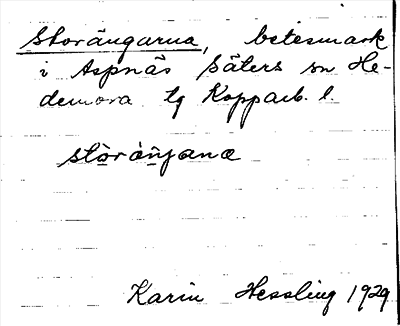 Storängarna, betesmark
i Aspnäs Säters sn He-
demora tg Kopparb. l.
stòráṉjana
Karin Hessling 1929